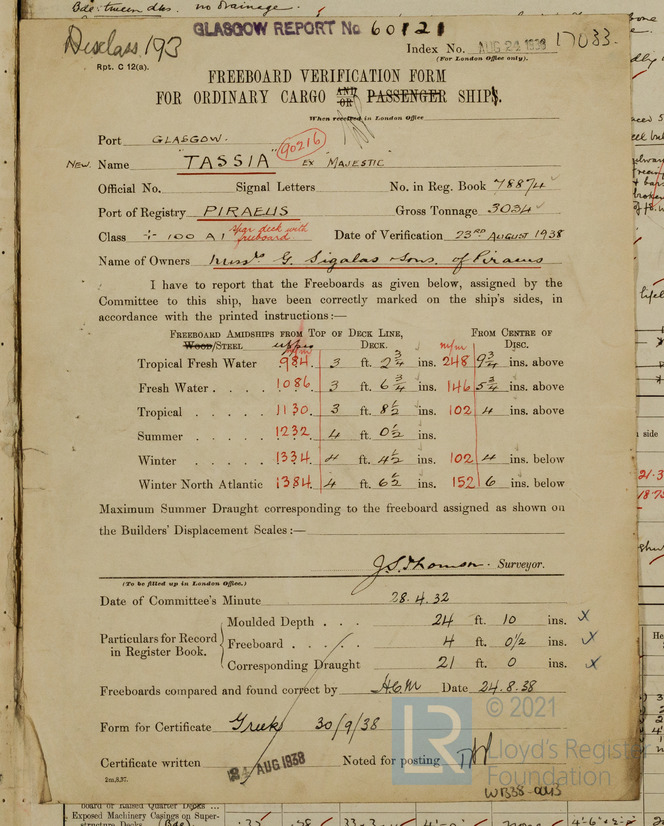 Bde: tween dks. no drainage.
Disclass 193
GLASGOW REPORT No 60121
Index No. AUG 24 1938 17033.
(For London Office only).
Rpt. C 12(a).
FREEBOARD VERIFICATION FORM
FOR ORDINARY CARGO AND OR PASSENGER SHIPS.
When received in London Office
Port GLASGOW.
90216
NEW. Name "TASSIA" EX MAJESTIC
Official No. Signal Letters No. in Reg. Book 78874
Port of Registry PIRAEUS Gross Tonnage 3034
Class + 100 A1 spar deck with freeboard Date of Verification 23RD AUGUST 1938
Name of Owners Messrs G. Sigalas & Sons. of Piraeus
I have to report that the Freeboards as given below, assigned by the
Committee to this ship, have been correctly marked on the ship's sides, in
accordance with the printed instructions:—
FREEBOARD AMIDSHIPS FROM TOP OF DECK LINE, FROM CENTRE OF
WOOD/STEEL upper DECK. m/m DISC.
Tropical Fresh Water 984 3 ft. 2 3/4 ins. 248 9 3/4 ins. above
Fresh Water . . . . 1086 3 ft. 6 3/4 ins. 146 5 3/4 ins. above
Tropical . . . . . 1130 3 ft. 8 1/2 ins. 102 4 ins. above
Summer . . . . . 1232 4 ft. 0 1/2 ins.
Winter . . . . . 1334 4 ft. 4 1/2 ins. 102 4 ins. below
Winter North Atlantic 1384 4 ft. 6 1/2 ins. 152 6 ins. below
Maximum Summer Draught corresponding to the freeboard assigned as shown on
the Builders' Displacement Scales:—
J.S. Thomson. Surveyor.
(To be filled up in London Office.)
Date of Committee's Minute 28.4.32
Particulars for Record in Register Book.
Moulded Depth . . . 24 ft. 10 ins. x
Freeboard . . . . 4 ft. 0 1/2 ins. x
Corresponding Draught 21 ft. 0 ins. x
Freeboards compared and found correct by H.C.M Date 24.8.38
Form for Certificate Greek 30/9/38
Certificate written 24 AUG 1938 Noted for posting
2m,8,37.
© 2021
LR Lloyd's Register
Foundation
W1338-0043
board or Raised Quarter Decks ...
Exposed Machinery Casings on Super-
structure Decks (Bde)